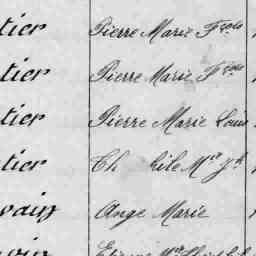 tier Pierre Marie Fçois
tier Pierre Marie Fçois
tier Pierre Marie Louis
tier Th hile Mie Jh
vain Ange Marie
vain Etienne